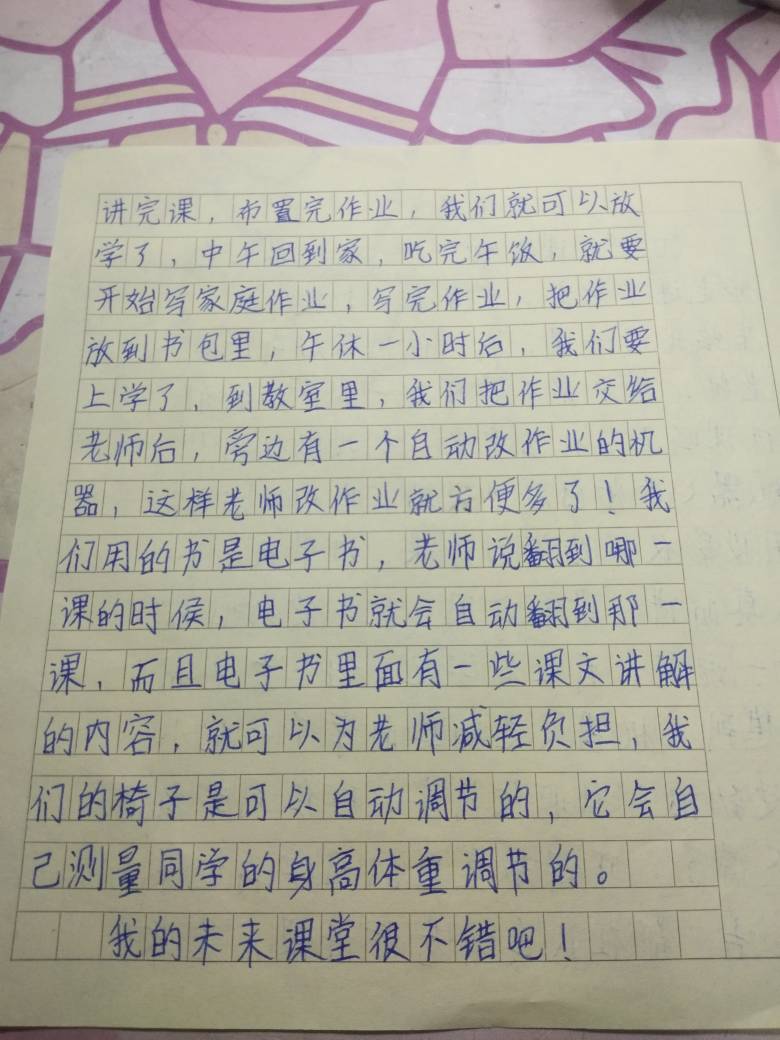 讲完课，布置完作业，我们就可以放
学了，中午回到家，吃完午饭，就要
开始写家庭作业，写完作业，把作业
放到书包里，午休一小时后，我们要
上学了，到教室里，我们把作业交给
老师后，旁边有一个自动改作业的机
器，这样老师改作业就方便多了！我
们用的书是电子书，老师说翻到哪一
课的时侯，电子书就会自动翻到那一
课，而且电子书里面有一些课文讲解
的内容，就可以为老师减轻负担，我
们的椅子是可以自动调节的，它会自
己测量同学的身高体重调节的。
我的未来课堂很不错吧！